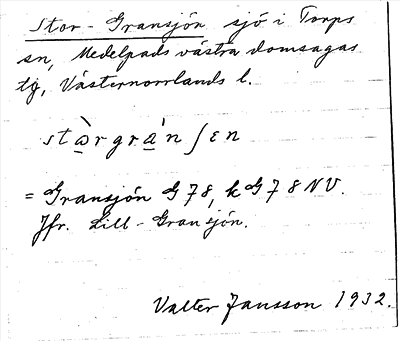 Stor-Gransjön sjö i Torps
sn, Medelpads västra domsagas
tg, Västernorrlands l.
stɷ̀rgrán ʃɛn
= Gransjön G 78, k G 78 NV.
Jfr. Lill-Gransjön.
Valter Jansson 1932.